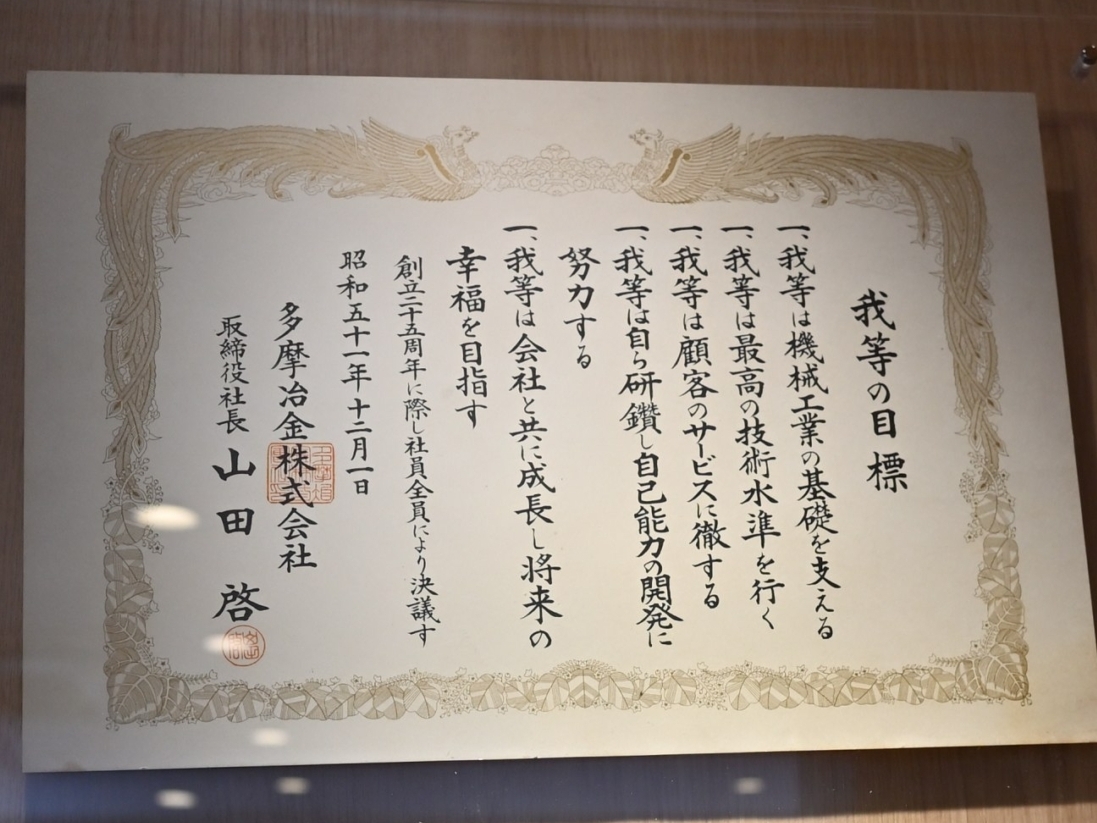 我等の目標
一、我等は機械工業の基礎を支える
一、我等は最高の技術水準を行く
一、我等は顧客のサービスに徹する
一、我等は自ら研鑽し自己能力の開発に
努力する
一、我等は会社と共に成長し将来の
幸福を目指す
創立二十五周年に際し社員全員により決議す
昭和五十一年十二月一日
多摩冶金株式会社
取締役社長 山田 啓